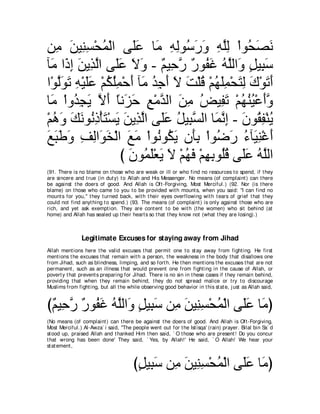 نَصَحُواْ لِلَّهِ وَرَسُولِهِ مَا عَلَى الْمُحْسِنِينَ مِن
سَبِيلٍ وَاللَّهُ غَفُورٌ رَّحِيمٌ - وَلاَ عَلَى الَّذِينَ إِذَا مَآ
أَتَوْكَ لِتَحْمِلَهُمْ قُلْتَ لاَ أَجِدُ مَآ أَحْمِلُكُمْ عَلَيْهِ تَوَلَّوْا
وَّأَعْيُنُهُمْ تَفِيضُ مِنَ الدَّمْعِ حَزَناً أَلاَّ يَجِدُواْ مَا
يُنْفِقُونَ - إِنَّمَا السَّبِيلُ عَلَى الَّذِينَ يَسْتَأْذِنُونَكَ وَهُمْ
أَغْنِيَآءُ رَضُواْ بِأَن يَكُونُواْ مَعَ الْخَوَالِفِ وَطَبَعَ
اللَّهُ عَلَى قُلُوبِهِمْ فَهُمْ لاَ يَعْلَمُونَ )
(91. There is no blame on those who are weak or ill or who find no resources to spend, if they
are sincere and true (in duty) to Allah and His Messenger. No means (of complaint) can there
be against the doers of good. And Allah is Oft-Forgiving, Most Merciful.) (92. Nor (is there
blame) on those who came to you to be provided with mounts, when you said: "I can find no
mounts for you,'' they turned back, with their eyes overflowing with tears of grief that they
could not find anything to spend.) (93. The means (of complaint) is only against those who are
rich, and yet ask exemption. They are content to be with (the women) who sit behind (at
home) and Allah has sealed up their hearts so that they know not (what they are losing).)
Legitimate Excuses for staying away from Jihad
Allah mentions here the valid excuses that permit one to stay away from fighting. He first
mentions the excuses that remain with a person, the weakness in the body that disallows one
from Jihad, such as blindness, limping, and so forth. He then mentions the excuses that are not
permanent, such as an illness that would prevent one from fighting in the cause of Allah, or
poverty that prevents preparing for Jihad. There is no sin in these cases if they remain behind,
providing that when they remain behind, they do not spread malice or try to discourage
Muslims from fighting, but all the while observing good behavior in this state, just as Allah said,
(مَا عَلَى الْمُحْسِنِينَ مِن سَبِيلٍ وَاللَّهُ غَفُورٌ رَّحِيمٌ)
(No means (of complaint) can there be against the doers of good. And Allah is Oft-Forgiving,
Most Merciful.) Al-Awza`i said, "The people went out for the Istisqa' (rain) prayer. Bilal bin Sa`d
stood up, praised Allah and thanked Him then said, `O those who are present! Do you concur
that wrong has been done' They said, `Yes, by Allah!' He said, `O Allah! We hear your
statement,
(مَا عَلَى الْمُحْسِنِينَ مِن سَبِيلٍ)